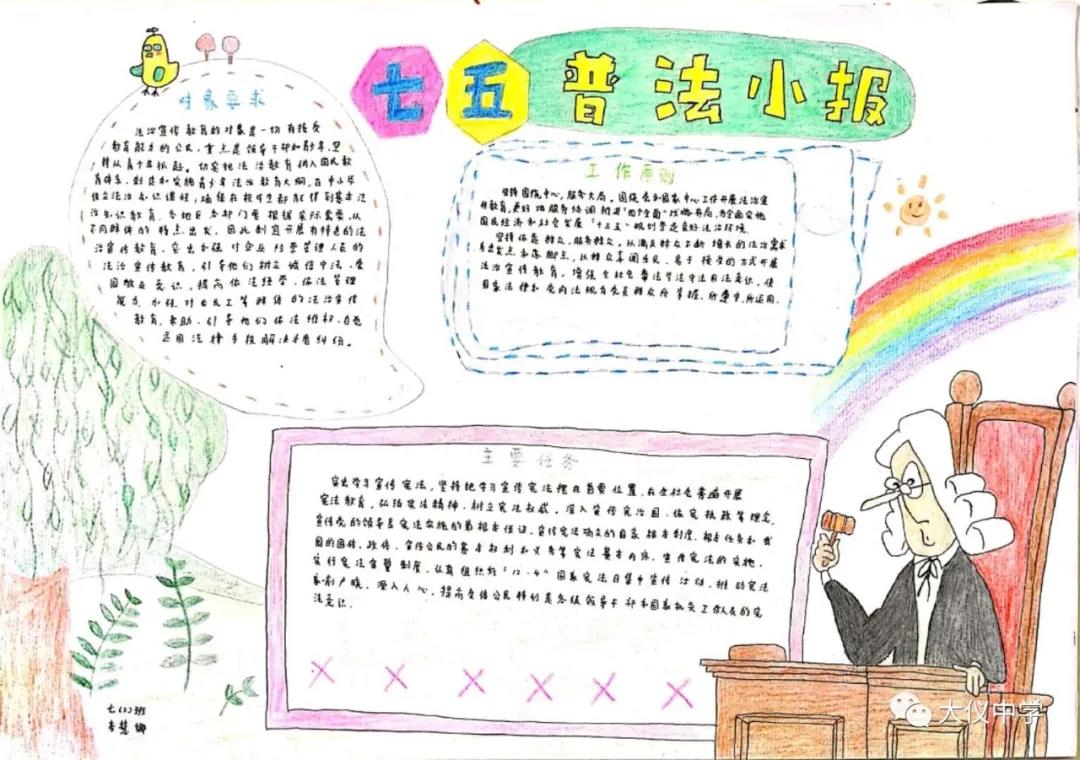 七五普法小报
对象要求
法治宣传教育的对象是一切有接受
教育能力的公民，重点是领导干部和青少年。坚
持从青少年抓起。切实把法治教育纳入国民教
育体系，制定和实施青少年法治教育大纲，在中小学
设立法治知识课程，确保在校学生都能得到基本法
治知识教育。各地区各部门要根据实际需要，从
不同群体的特点出发，因此制宜开展有特色的法
治宣传教育。突出加强对企业经营管理人员的
法治宣传教育，引导他们树立诚信守法、爱
国敬业意识，提高依法经营、依法管理
能力。加强对农民工等群体的法治宣传
教育，帮助、引导他们依法维权，自觉
运用法律手段解决矛盾纠纷。
工作原则
坚持围绕中心，服务大局。围绕党和国家中心工作开展法治宣
传教育，更好地服务协调推进“四个全面”战略布局，为全面实施
国民经济和社会发展“十三五”规划营造良好法治环境。
坚持依靠群众，服务群众，从满足群众不断增长的法治需求
为出发点和落脚点，以群众喜闻乐见、易于接受的方式开展
法治宣传教育，增强全社会尊法学法守法用法意识，使
国家法律和党内法规为党员群众所掌握、所遵守、所运用。
主要任务
突出学习宣传宪法，坚持把学习宣传宪法摆在首要位置，在全社会普遍开展
宪法教育，弘扬宪法精神，树立宪法权威。深入宣传宪治国、依宪执政等理念，
宣传党的领导是宪法实施的最根本保证，宣传宪法确立的国家根本制度、根本任务和我
国的国体、政体，宣传公民的基本权利和义务等宪法基本内容，宣传宪法的实施，
实行宪法宣誓制度，认真组织好“12·4”国家宪法日集中宣传活动，推动宪法
家喻户晓、深入人心，提高全体公民特别是各级领导干部和国家机关工作人员的宪
法意识。
七(1)班
李慧娜
大仪中学